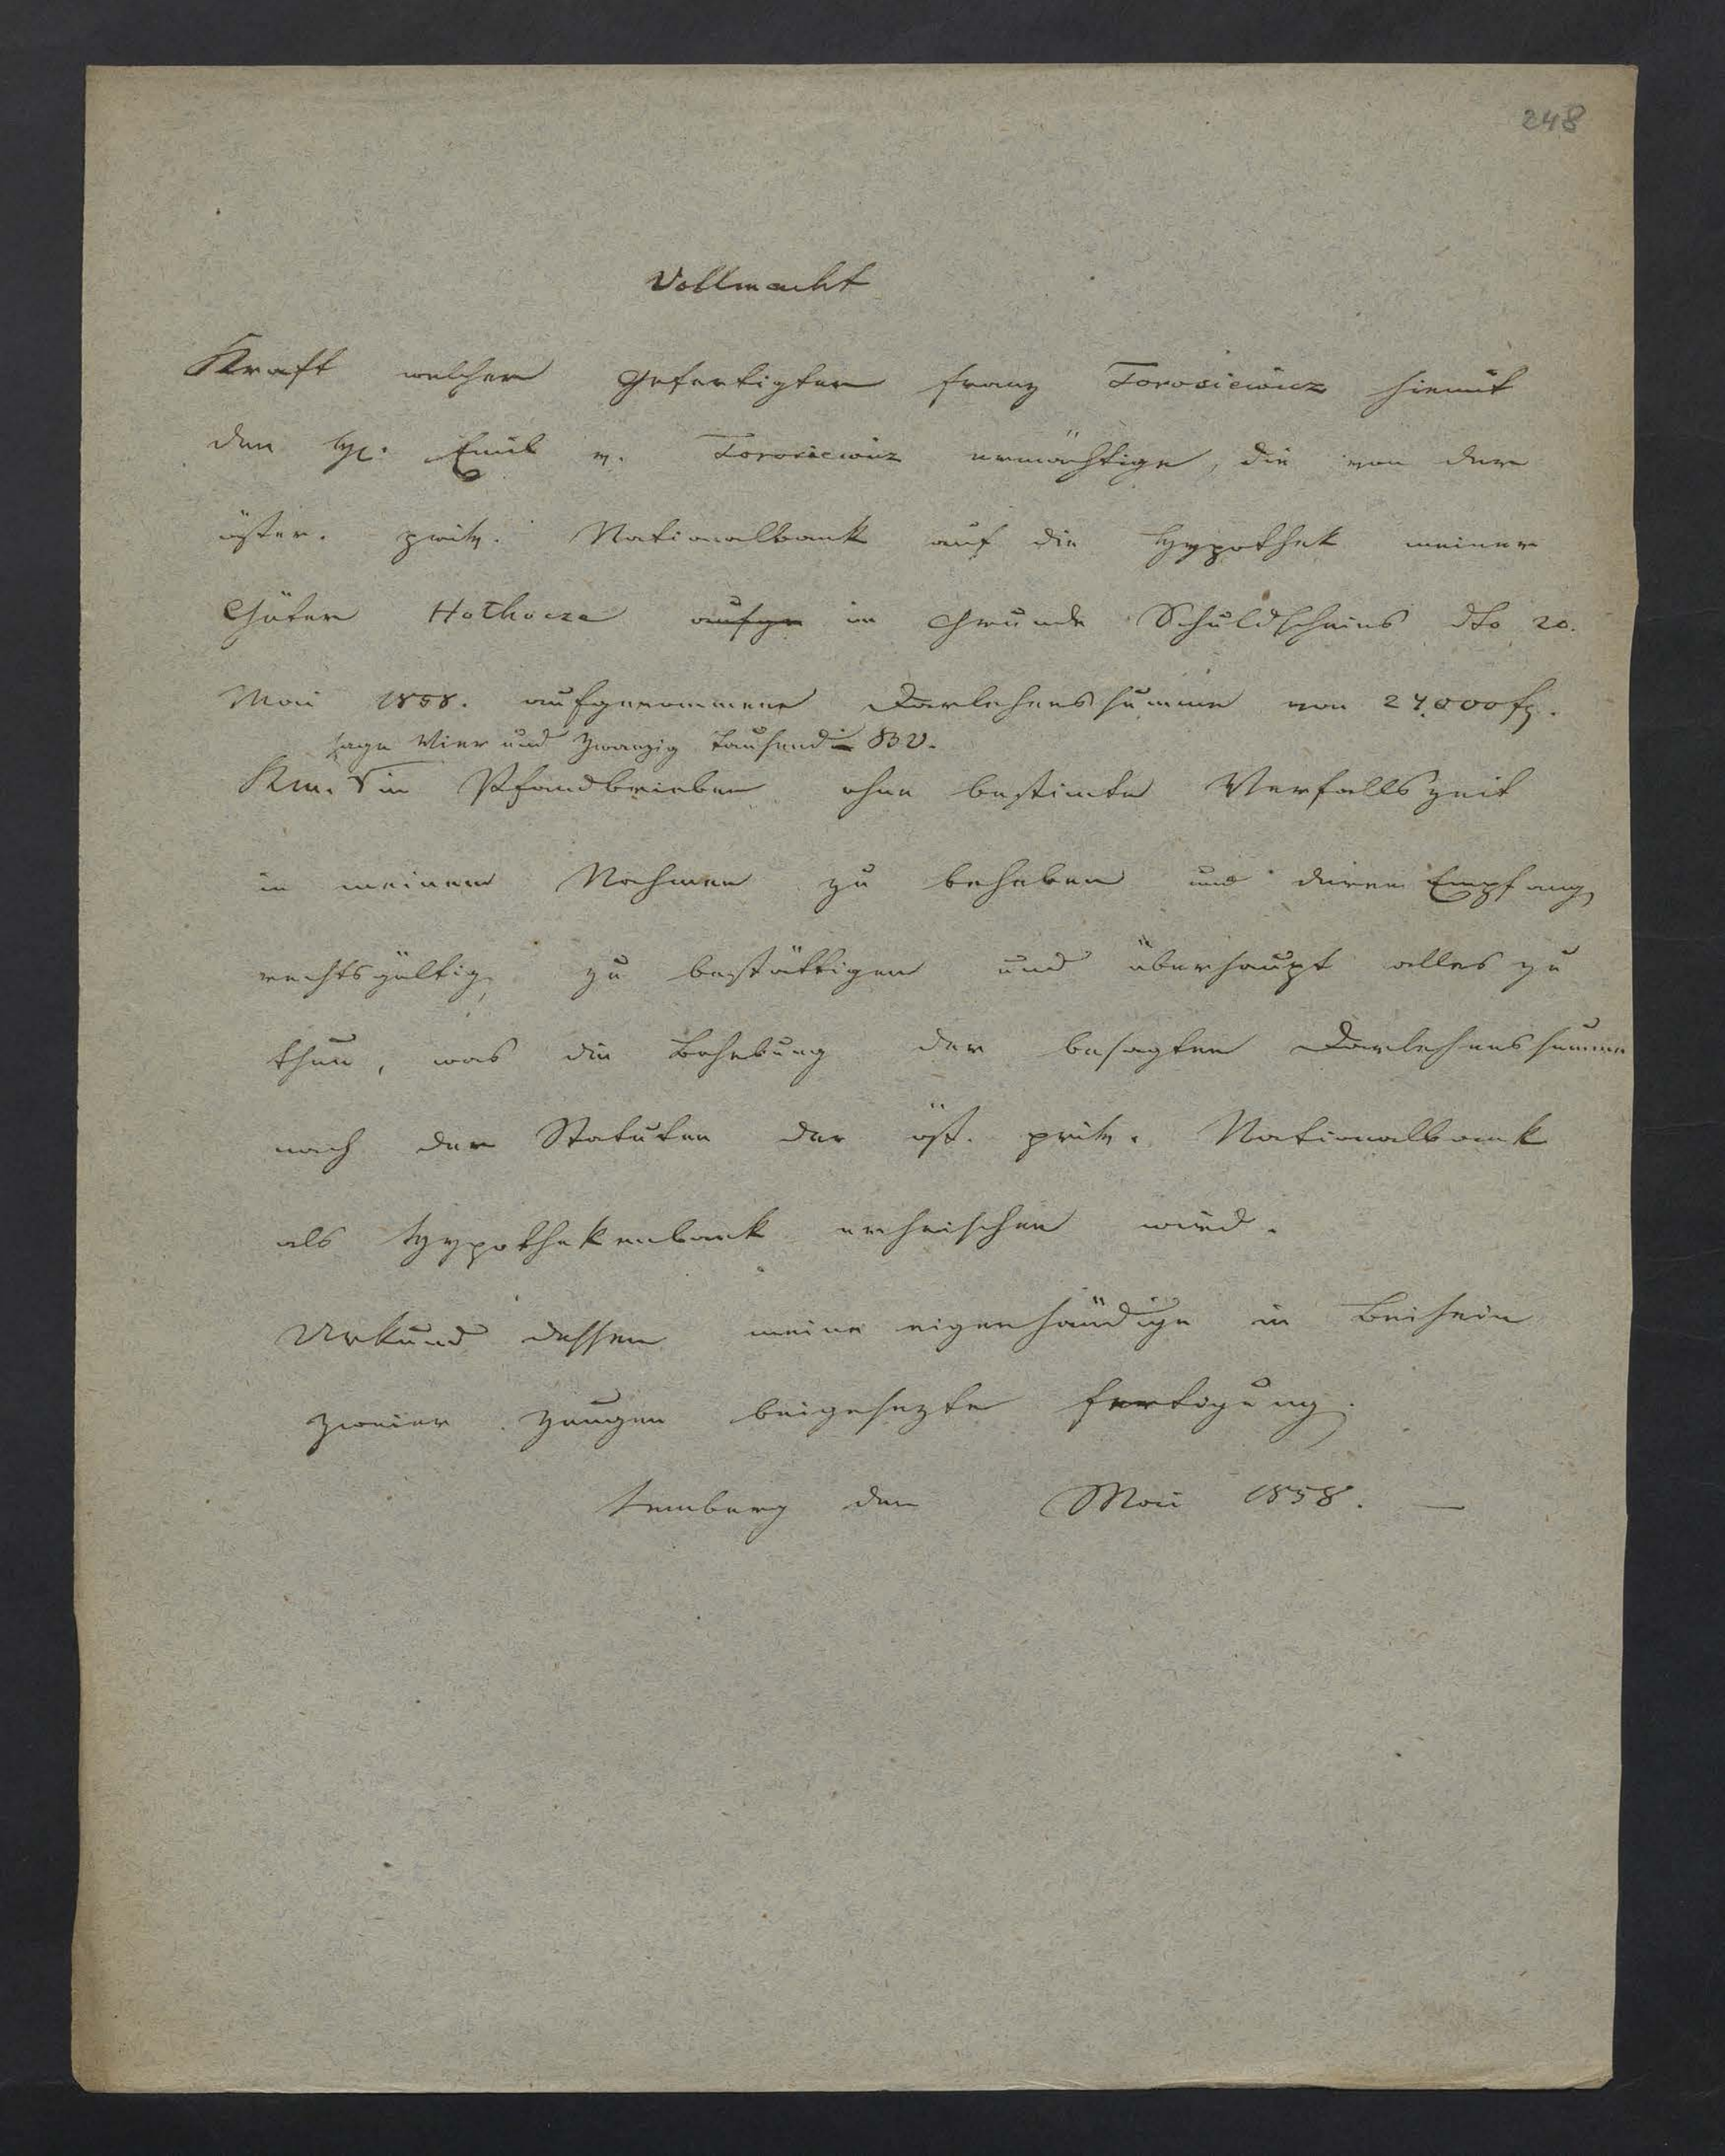 248
Vollmacht
Kraft welcher Gefertigter Franz Torosiewicz hiemit
den H. Emil v. Torosiewicz ermächtige, die von der
öster. priv. Nationalbank auf die Hypothek meiner
Güter Hothocza aufge im Grunde Schuldscheins dto 20.
Mai 1858. aufgenommene Darlehenssumme von 24,000 fl.
sage Vier und Zwanzig Tausend BV.
Km. in Pfandbriefen ohne bestimte Verfallszeit
in meinem Nahmen zu beheben und deren Empfang
rechtsgültig zu bestättigen und überhaupt alles zu
thun, was die Behebung der besagten Darlehenssumme
nach den Statuten der öst. priv. Nationalbank
als Hypothekenbank erheischen wird.
Urkund dessen meine eigenhändige in Beisein
zweier Zeugen beigesezte Fertigung.
Lemberg den Mai 1858. —